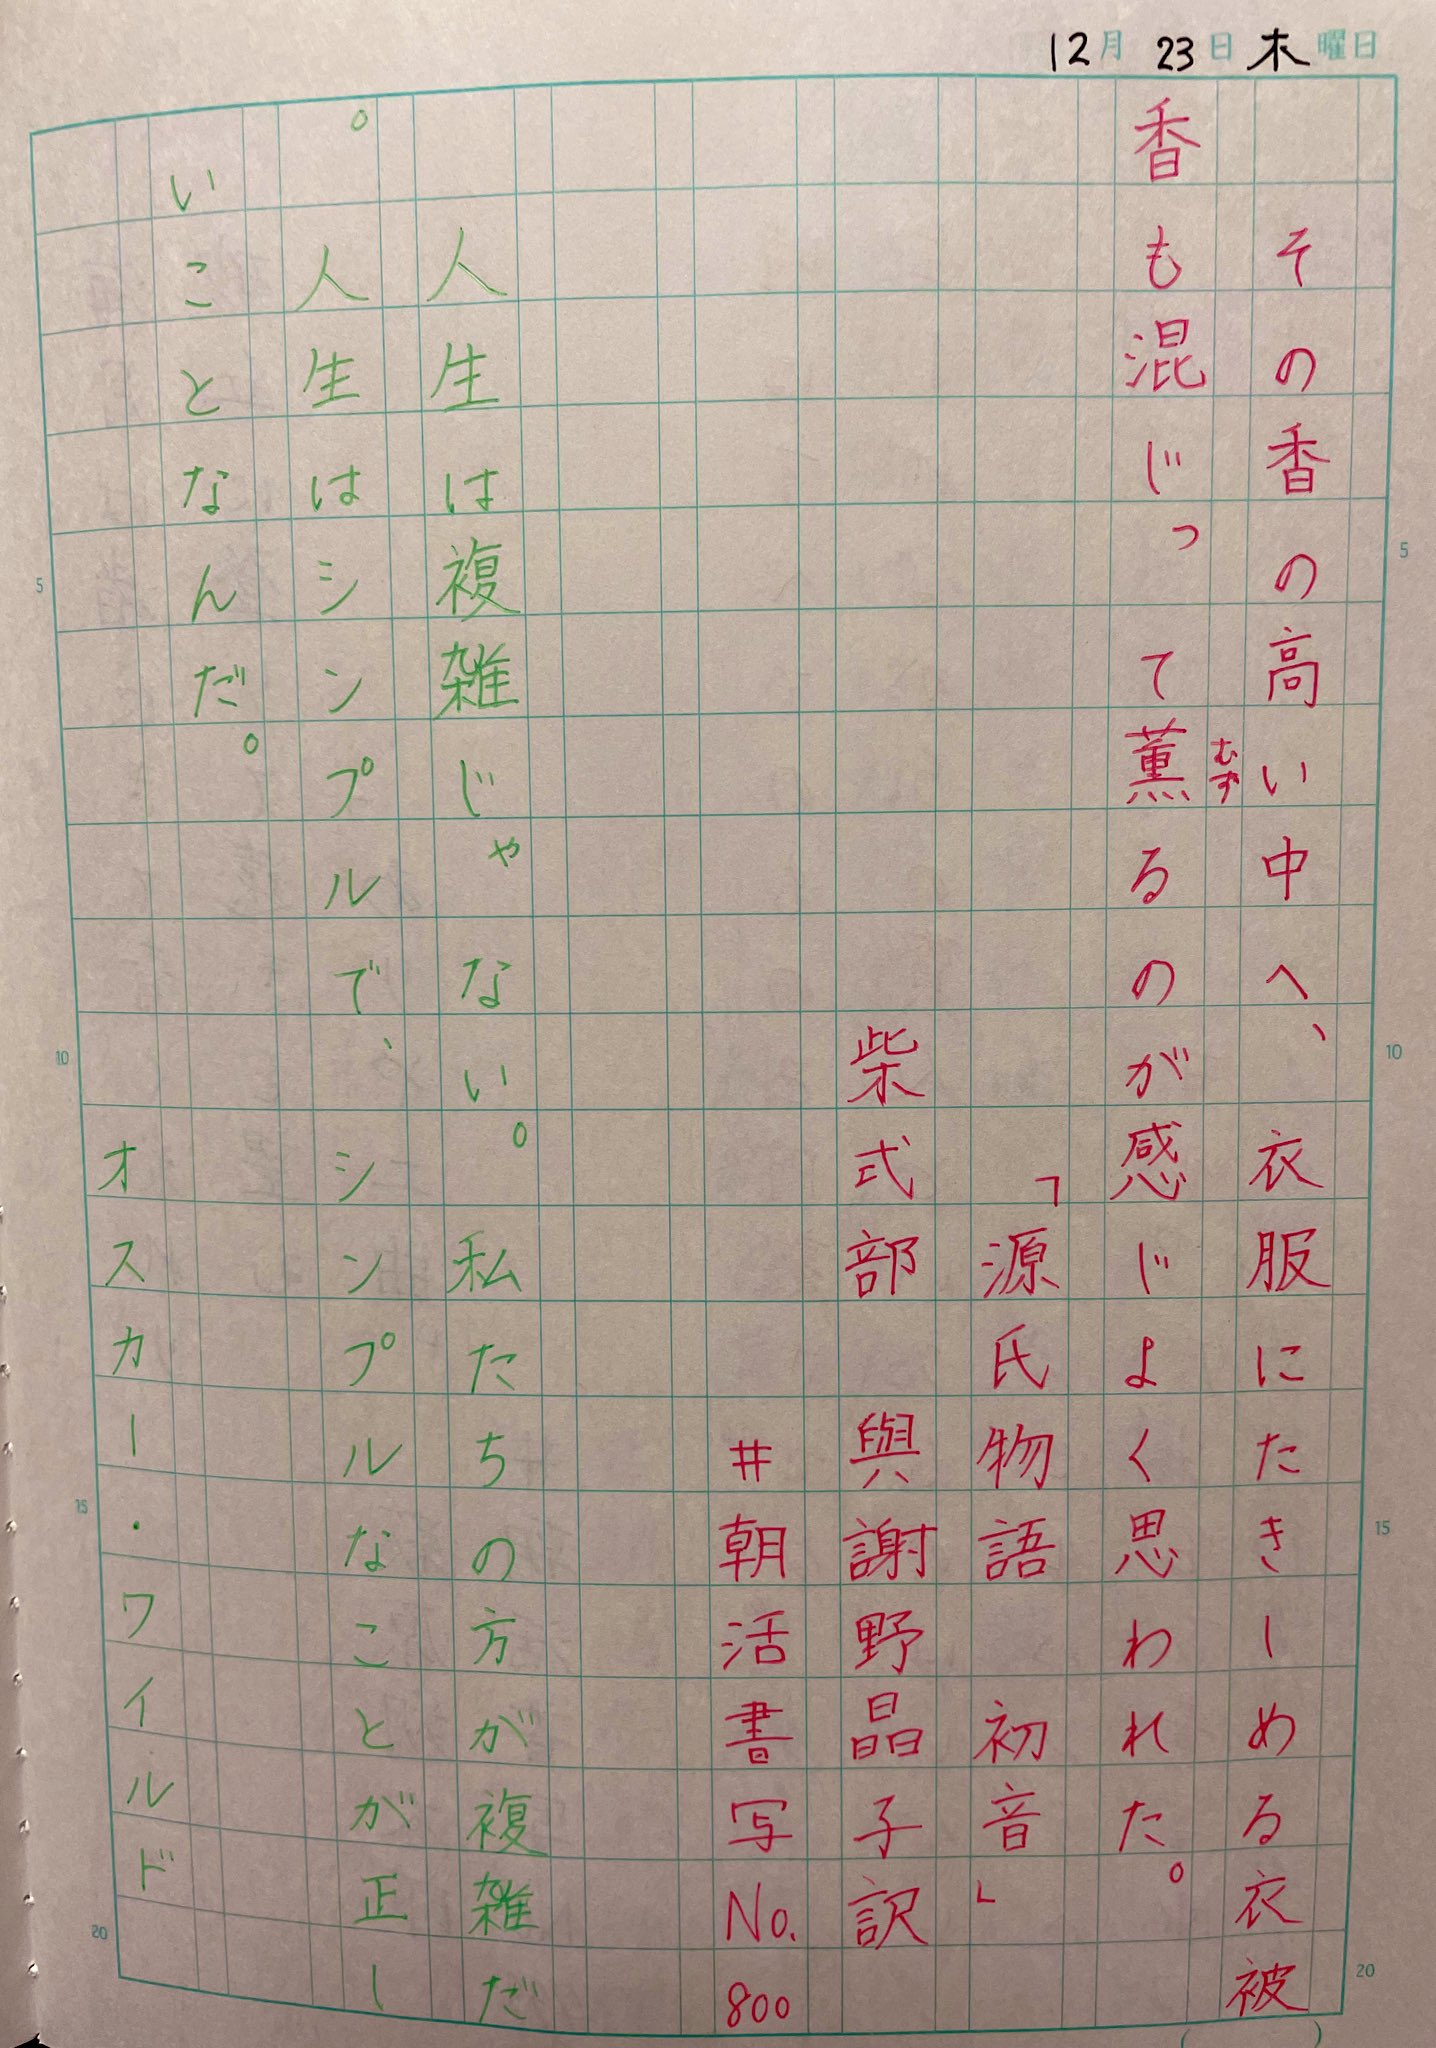 12月 23日 木曜日
その香の高い中へ、衣服にたきしめる衣被
むず
香も混じって薫るのが感じよく思われた。
「源氏物語 初音」
柴式部 與謝野晶子訳
#朝活書写No.800
人生は複雑じゃない。私たちの方が複雑だ
。人生はシンプルで、シンプルなことが正し
いことなんだ。
オスカー・ワイルド
5
10
15
20
5
10
15
20